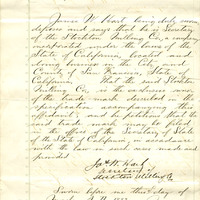 James W. Hart being duly sworn
deposes and says that he is Secretary
of the Stockton Milling Co., a company
incorporated under the laws of the
State of California, located and
doing business in the City and
County of San Francisco, State
California. that the said Stockton
Milling Co., is the exclusive owner
of the trade mark described in the
specification accompanying this
affidavit, and he petitions that the
said trade mark may be filed
in the office of the Secretary of State
of the State of California, in accordance
with the law in such cases made and
provided.
Jas W. Hart
Secretary
Stockton Milling Co
Sworn before me this day of